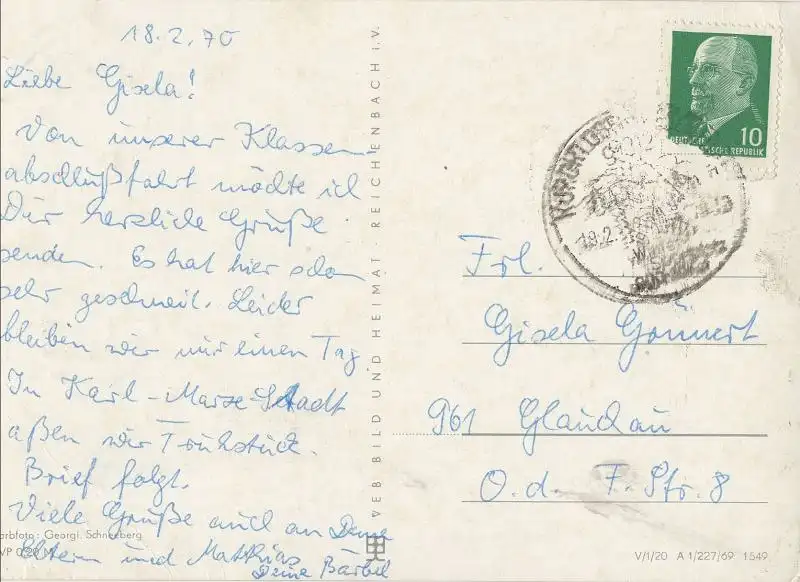 18.2.70
Liebe Gisela!
Von unserer Klassen-
abschlußfahrt möchte ich
Dir herzliche Grüße
senden. Es hat hier schon
sehr geschneit. Leider
bleiben wir nur einen Tag
In Karl-Marx-Stadt
aßen wir Frühstück.
Brief folgt.
Viele Grüße auch an Deine
Eltern und Matthias
Deine Bärbel
arbfoto: Georgi, Schneeberg
VEB BILD UND HEIMAT · REICHENBACH i.V.
10
DEUTSCHE
DEMOKRATISCHE REPUBLIK
18.2.
Frl.
Gisela Gonnert
961 Glauchau
O. d. F. Str. 8
V/1/20 A 1/227/69 1549